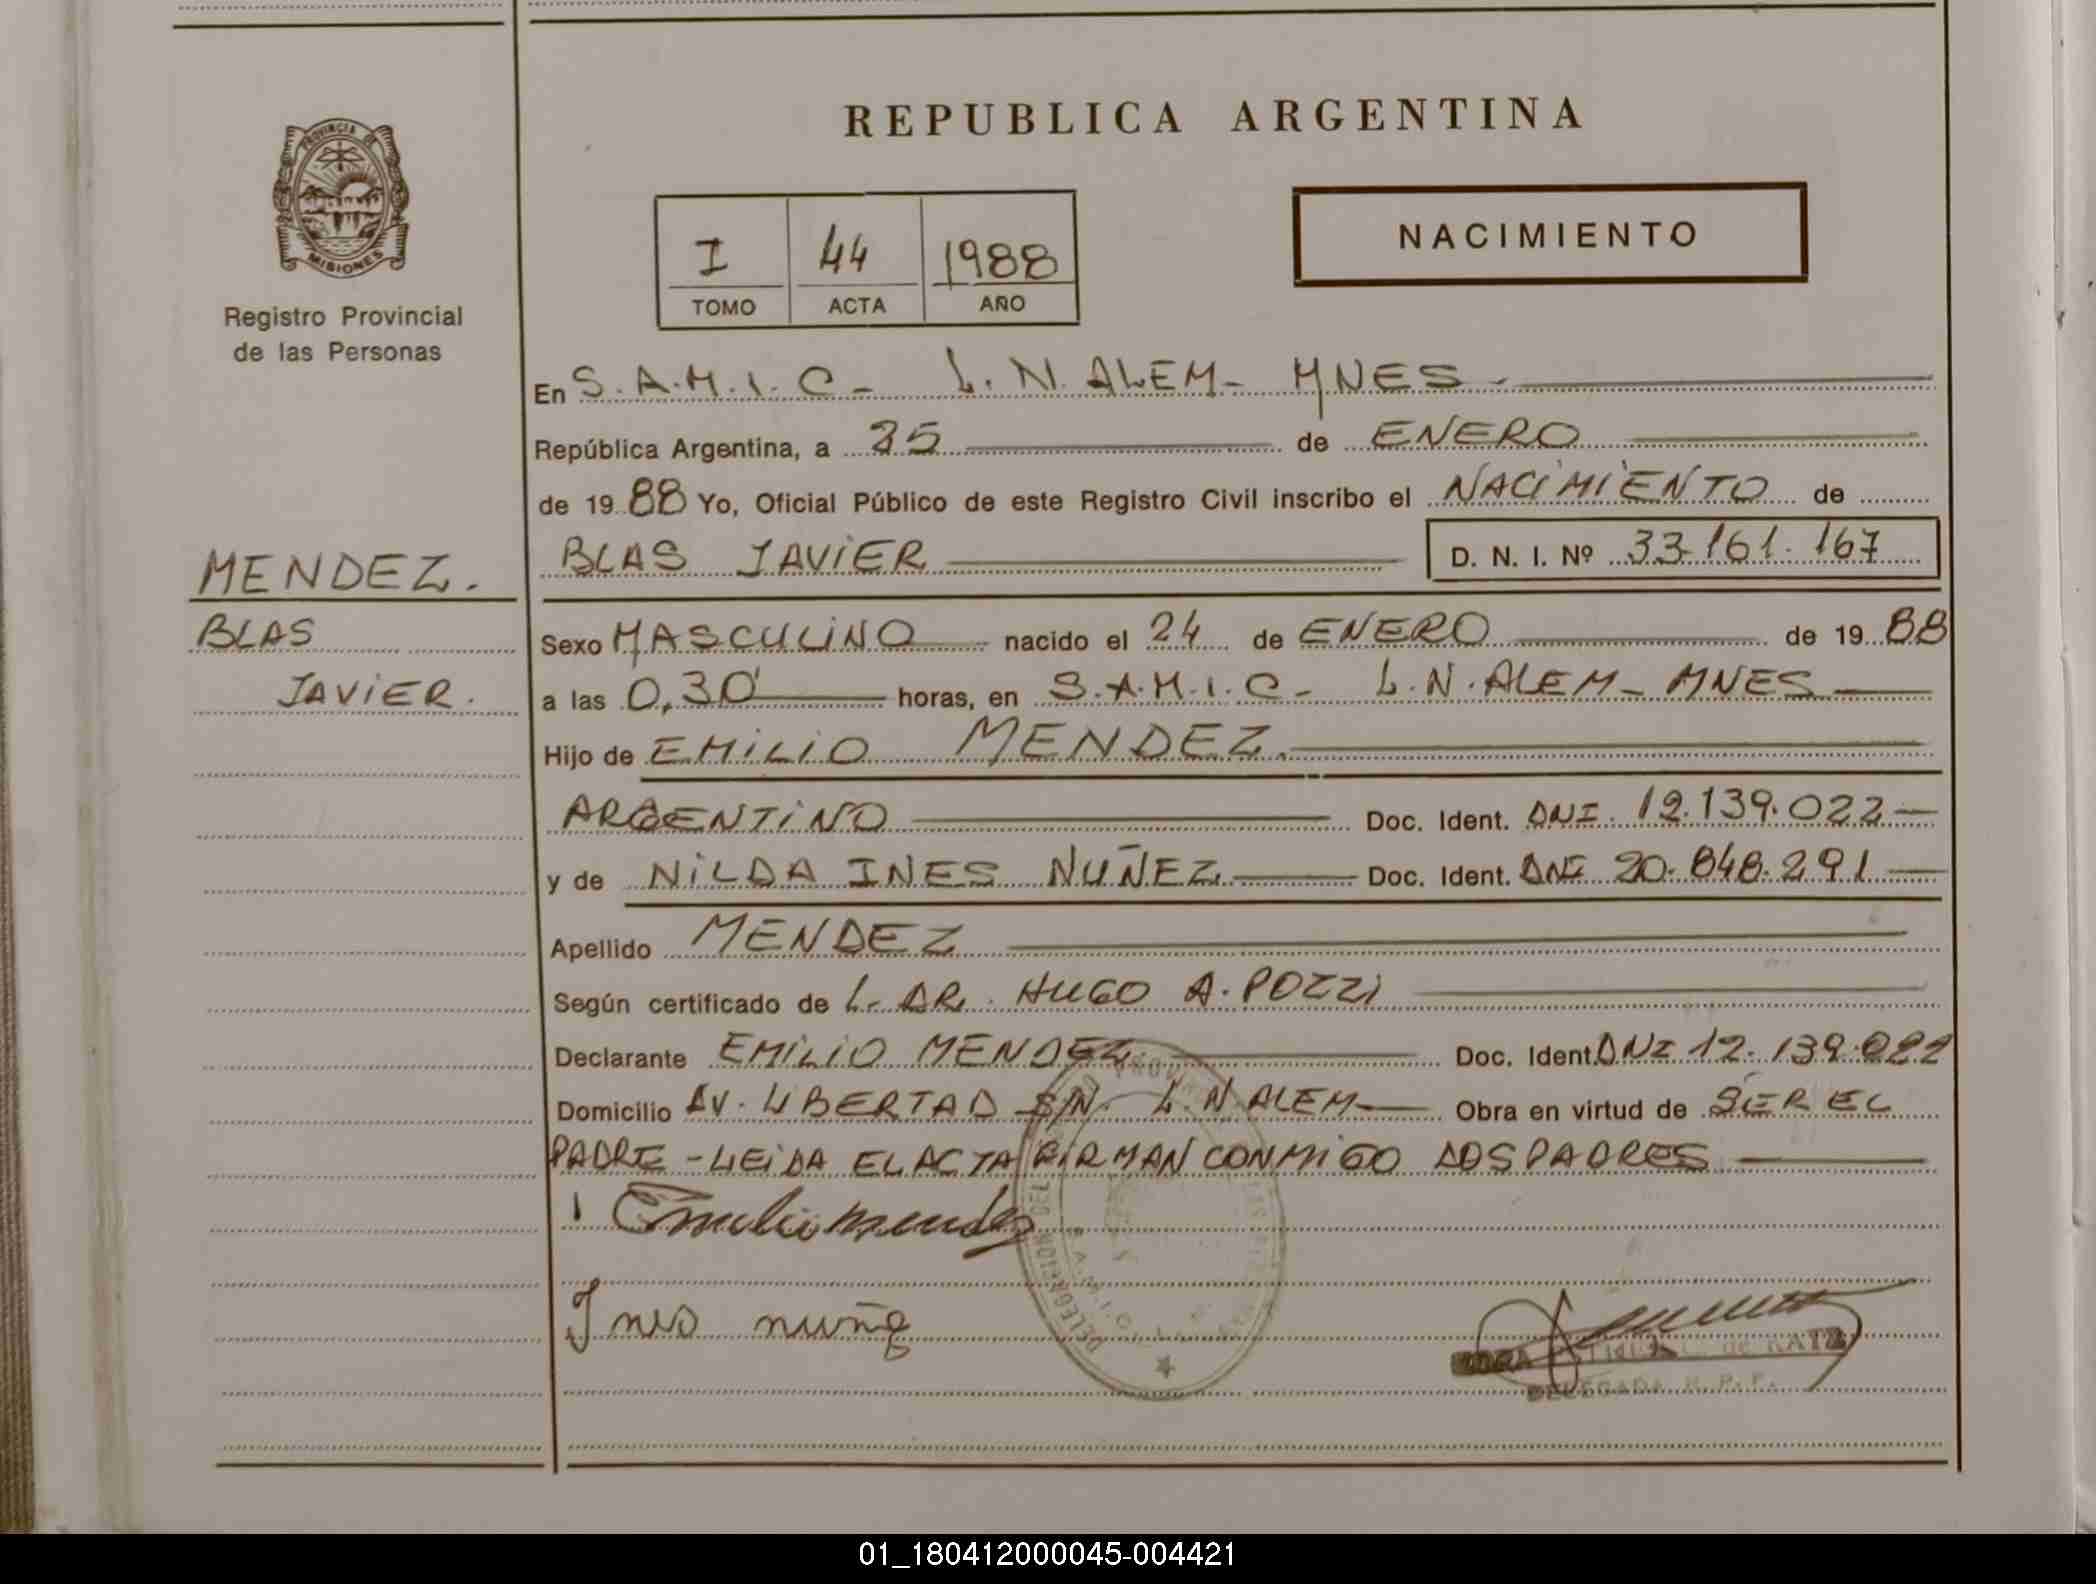 REPUBLICA ARGENTINA
PROVINCIA DE
MISIONES
Registro Provincial
de las Personas
I 44 1988
TOMO ACTA AÑO
NACIMIENTO
En S.A.M.I.C- L.N.ALEM- MNES
República Argentina, a 25 de ENERO
de 19 88 Yo, Oficial Público de este Registro Civil inscribo el NACIMIENTO de
BLAS JAVIER D. N. I. Nº 33.161.167
MENDEZ.
BLAS
JAVIER.
Sexo MASCULINO nacido el 24 de ENERO de 19 88
a las 0,30' horas, en S.A.M.I.C- L.N.ALEM- MNES
Hijo de EMILIO MENDEZ.
ARGENTINO Doc. Ident. DNI. 12.139.022
y de NILDA INES NUÑEZ Doc. Ident. DNI 20.848.291
Apellido MENDEZ
Según certificado de L. DR. HUGO A. POZZI
Declarante EMILIO MENDEZ Doc. Ident. DNI 12.139.022
Domicilio AV. LIBERTAD S/N. L.N ALEM Obra en virtud de SER EL
PADRE - LEIDA EL ACTA FIRMAN CONMIGO LOS PADRES
Emilio mendez
Ines nuñez
de KATZ
DELEGADA R.P.P.
DELEGACION DEL
01_180412000045-004421